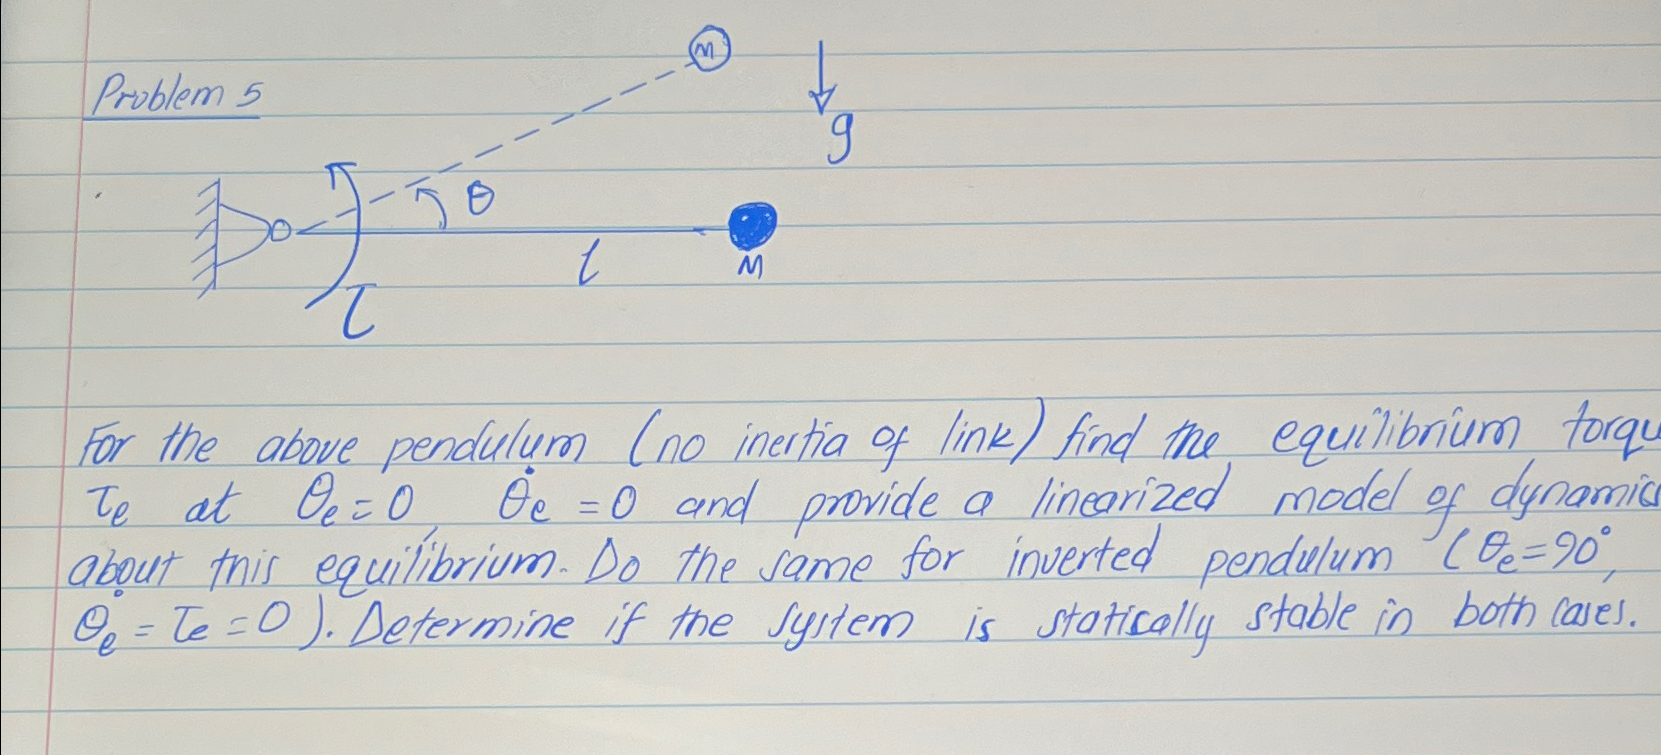 Problem 5
M
g
θ
l
M
τ
For the above pendulum (no inertia of link) find the equilibrium torqu
τe at θe = 0, θ̇e = 0 and provide a linearized model of dynamics
about this equilibrium. Do the same for inverted pendulum (θe = 90°,
θ̇e = τe = 0). Determine if the system is statically stable in both cases.